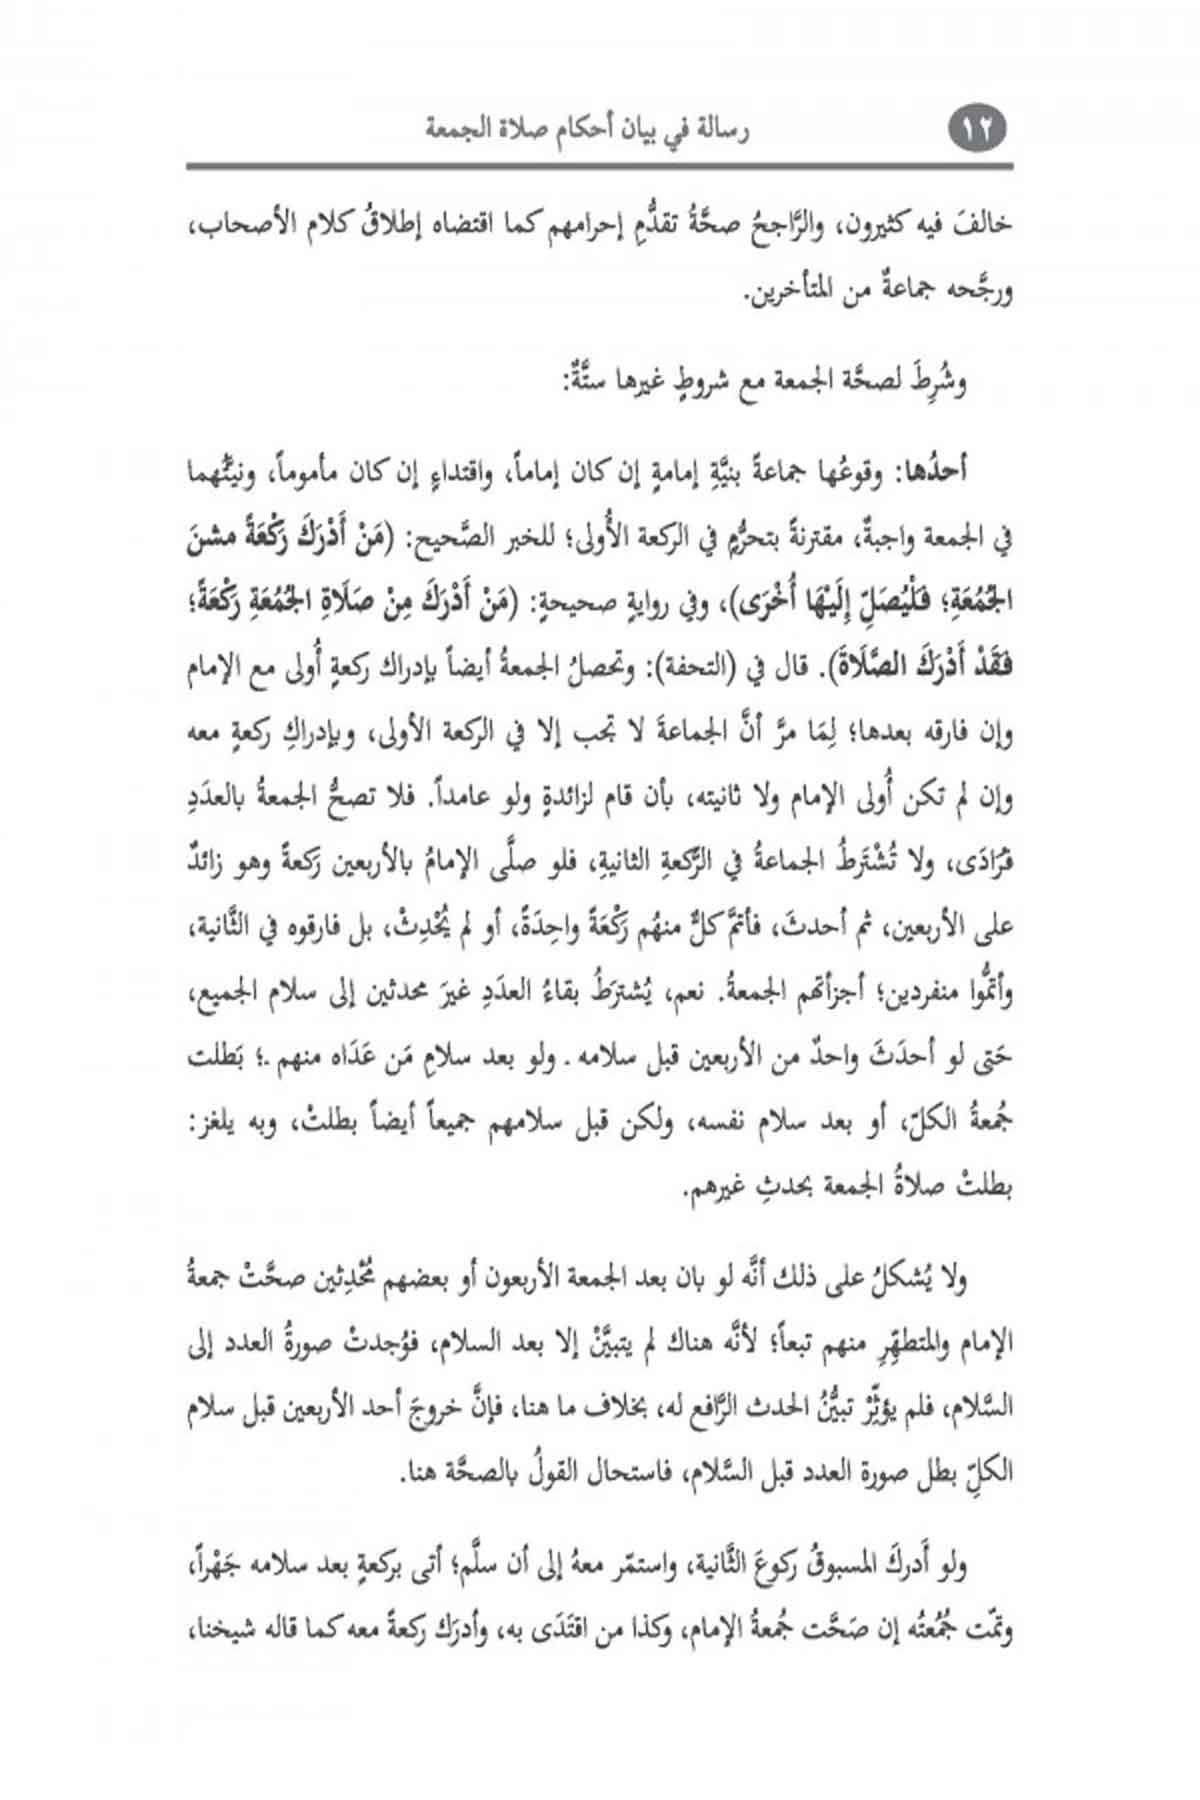 ١٢
رسالة في بيان أحكام صلاة الجمعة
خالفَ فيه كثيرون، والرَّاجحُ صحَّةُ تقدُّمِ إحرامهم كما اقتضاه إطلاقُ كلام الأصحاب،
ورجَّحه جماعةٌ من المتأخرين.
وشُرِطَ لصحَّة الجمعة مع شروطٍ غيرها ستَّةٌ:
أحدُها: وقوعُها جماعةً بنيَّةِ إمامةٍ إن كان إماماً، واقتداءٍ إن كان مأموماً، ونيتُهما
في الجمعة واجبةٌ، مقترنةً بتحرُّمٍ في الركعة الأُولى؛ للخبر الصَّحيح: (مَنْ أَدْرَكَ رَكْعَةً مشنَ
الجُمُعَةِ؛ فَلْيُصَلِّ إِلَيْهَا أُخْرَى)، وفي روايةٍ صحيحةٍ: (مَنْ أَدْرَكَ مِنْ صَلَاةِ الجُمُعَةِ رَكْعَةً؛
فَقَدْ أَدْرَكَ الصَّلَاةَ). قال في (التحفة): وتحصلُ الجمعةُ أيضاً بإدراك ركعةٍ أُولى مع الإمام
وإن فارقه بعدها؛ لِمَا مرَّ أنَّ الجماعةَ لا تجب إلا في الركعة الأولى، وبإدراكِ ركعةٍ معه
وإن لم تكن أُولى الإمام ولا ثانيته، بأن قام لزائدةٍ ولو عامداً. فلا تصحُّ الجمعةُ بالعدَدِ
فُرَادَى، ولا تُشْتَرطُ الجماعةُ في الرَّكعةِ الثانيةِ، فلو صلَّى الإمامُ بالأربعين رَكعةً وهو زائدٌ
على الأربعين، ثم أحدثَ، فأتمَّ كلٌّ منهُم رَكْعَةً واحِدَةً، أو لم يُحْدِثْ، بل فارقوه في الثَّانية،
وأتمُّوا منفردين؛ أجزأتهم الجمعةُ. نعم، يُشترَطُ بقاءُ العدَدِ غيرَ محدثين إلى سلام الجميع،
حَتى لو أحدَثَ واحدٌ من الأربعين قبل سلامه ـ ولو بعد سلامِ مَن عَدَاه منهم ـ؛ بَطلت
جُمعةُ الكلّ، أو بعد سلام نفسه، ولكن قبل سلامهم جميعاً أيضاً بطلتْ، وبه يلغز:
بطلتْ صلاةُ الجمعة بحدثِ غيرهم.
ولا يُشكلُ على ذلك أنَّه لو بان بعد الجمعة الأربعون أو بعضهم مُحْدِثين صحَّتْ جمعةُ
الإمام والمتطهِّرِ منهم تبعاً؛ لأنَّه هناك لم يتبيَّنْ إلا بعد السلام، فوُجدتْ صورةُ العدد إلى
السَّلام، فلم يؤثِّرْ تبيُّنُ الحدث الرَّافع له، بخلاف ما هنا، فإنَّ خروجَ أحد الأربعين قبل سلام
الكلِّ بطل صورة العدد قبل السَّلام، فاستحال القولُ بالصحَّة هنا.
ولو أَدركَ المسبوقُ ركوعَ الثَّانية، واستمّر معهُ إلى أن سلَّم؛ أتى بركعةٍ بعد سلامه جَهْراً،
وتمّت جُمُعتُه إن صَحَّت جُمعةُ الإمام، وكذا من اقتَدَى به، وأدرَك ركعةً معه كما قاله شيخنا،